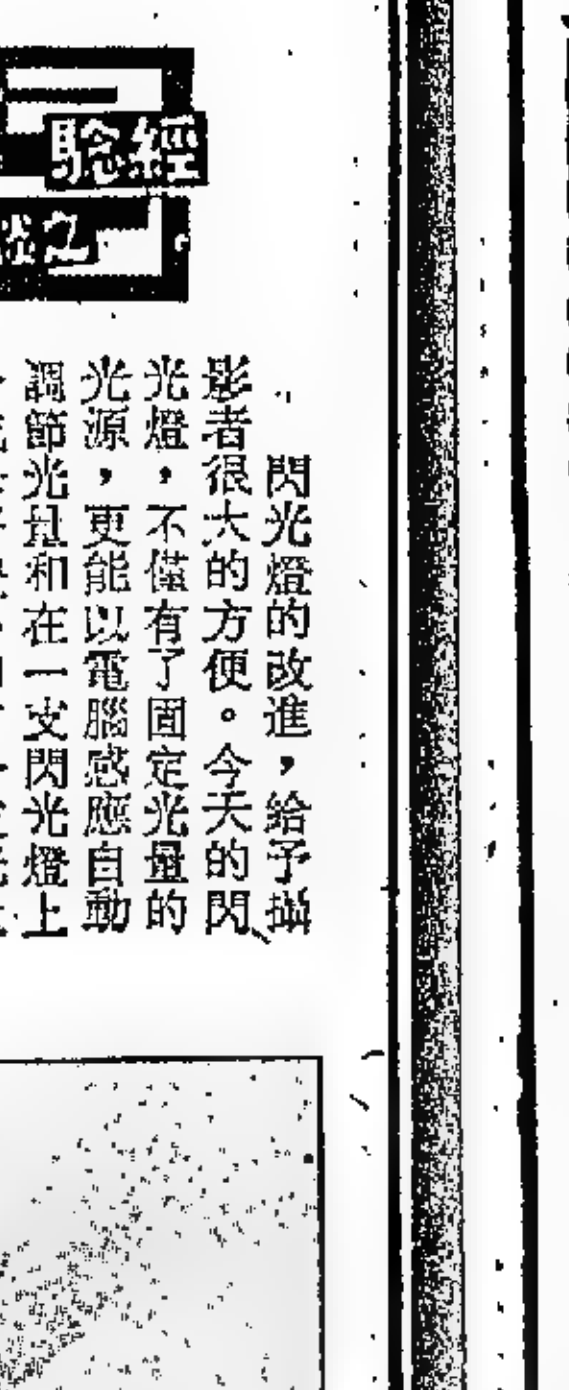 經驗
之
閃光燈的改進，給予攝
影者很大的方便。今天的閃
光燈，不僅有了固定光量的
光源，更能以電腦感應自動
調節光量和在一支閃光燈上